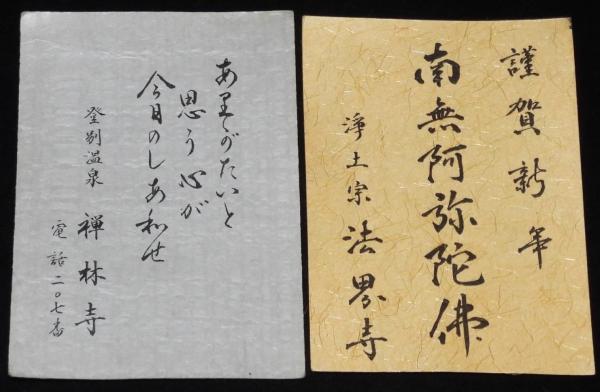 謹賀新年
南無阿弥陀佛
浄土宗 法界寺
ありがたいと
思う心が
今日のしあ和せ
登別温泉 禅林寺
電話二〇七番